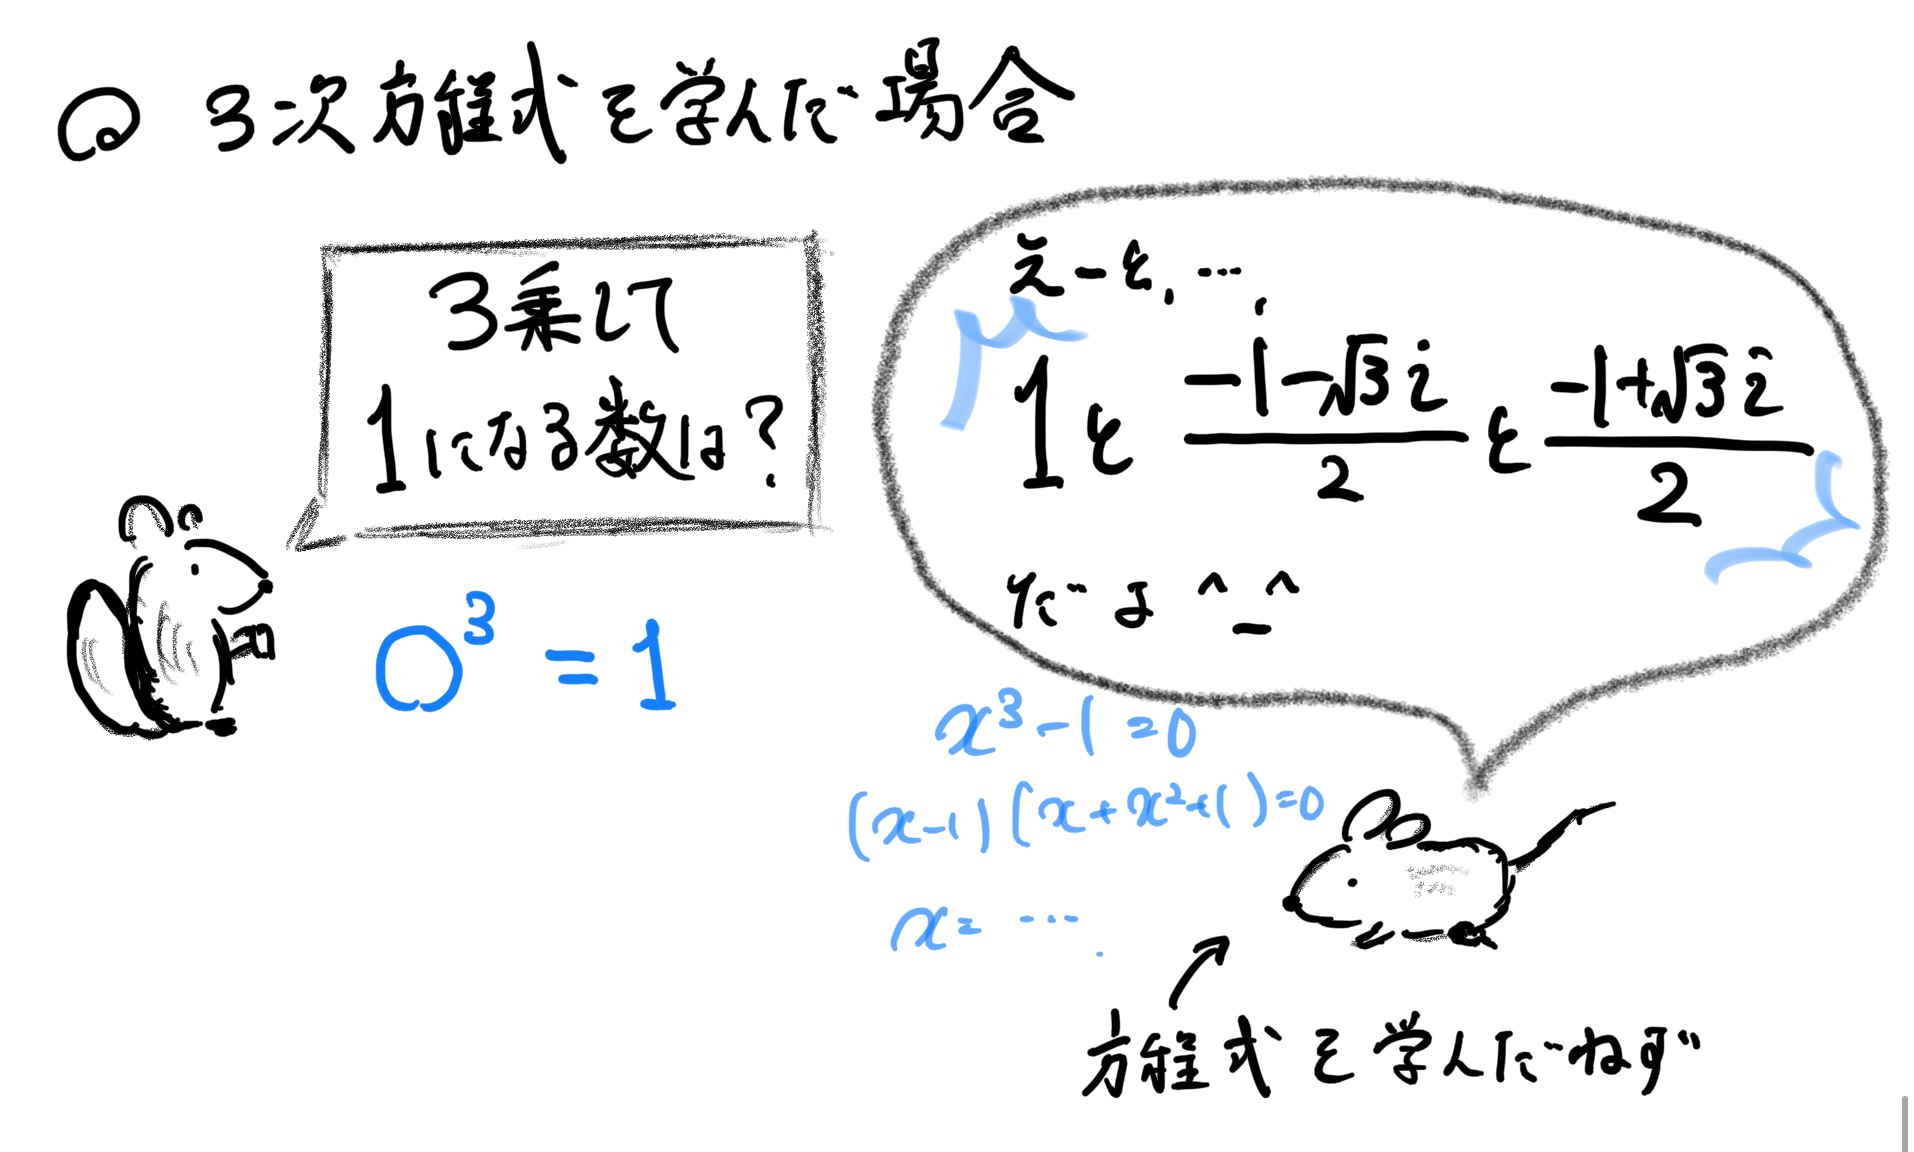 ○ 3次方程式を学んだ場合
3乗して
1になる数は?
○³ = 1
えーと, …,
1と (-1-√3i)/2 と (-1+√3i)/2
だよ ^_^
x³-1=0
(x-1)(x+x²+1)=0
x= ….
方程式を学んだねず